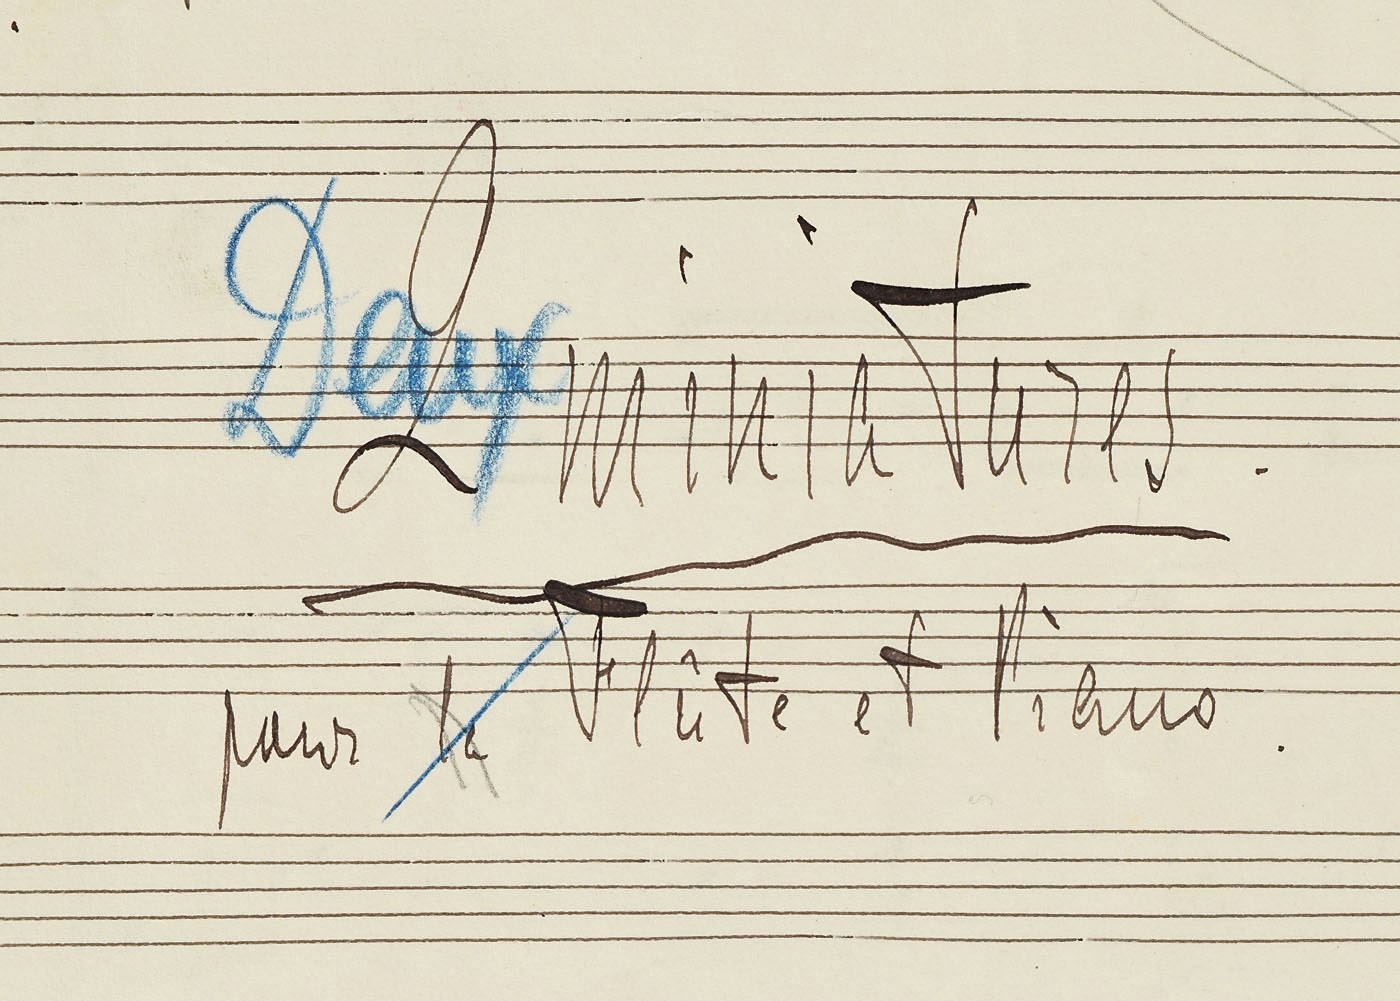 Deux 2 miniatures.
pour la Flûte et Piano.